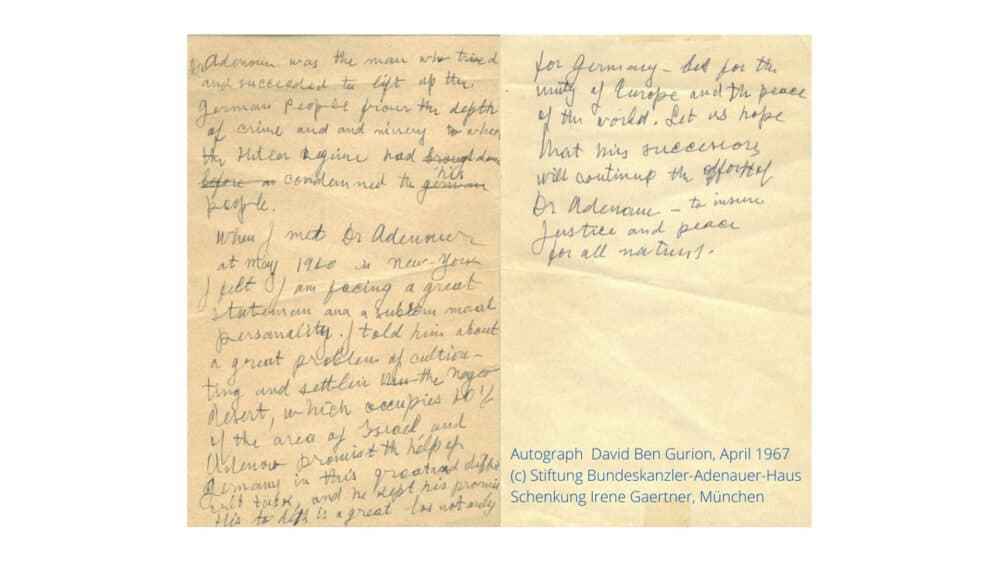 Dr Adenauer was the man who tried
and succeeded to lift up the
German People from the depth
of crime and and misery to
the Hitler regime had brough down
before condemned the german his
people.
When I met Dr Adenauer
at may 1960 in New-York
I felt I am facing a great
stateman and a sublem moral
personality. I told him about
a great problem of cultiva-
ting and settlin the Negev
Desert, which occupies 60%
of the area of Israel and
Adenow promist th help of
Germany in this great and diffi-
cult task, and he kept his promis
His is a great los not only
for Germany - but for the
unity of Europe and th peace
of the world. Let us hope
that his successors
will continue the effort of
Dr Adenaue - to insure
Justice and peace
for all nations.
Autograph David Ben Gurion, April 1967
(c) Stiftung Bundeskanzler-Adenauer-Haus
Schenkung Irene Gaertner, München